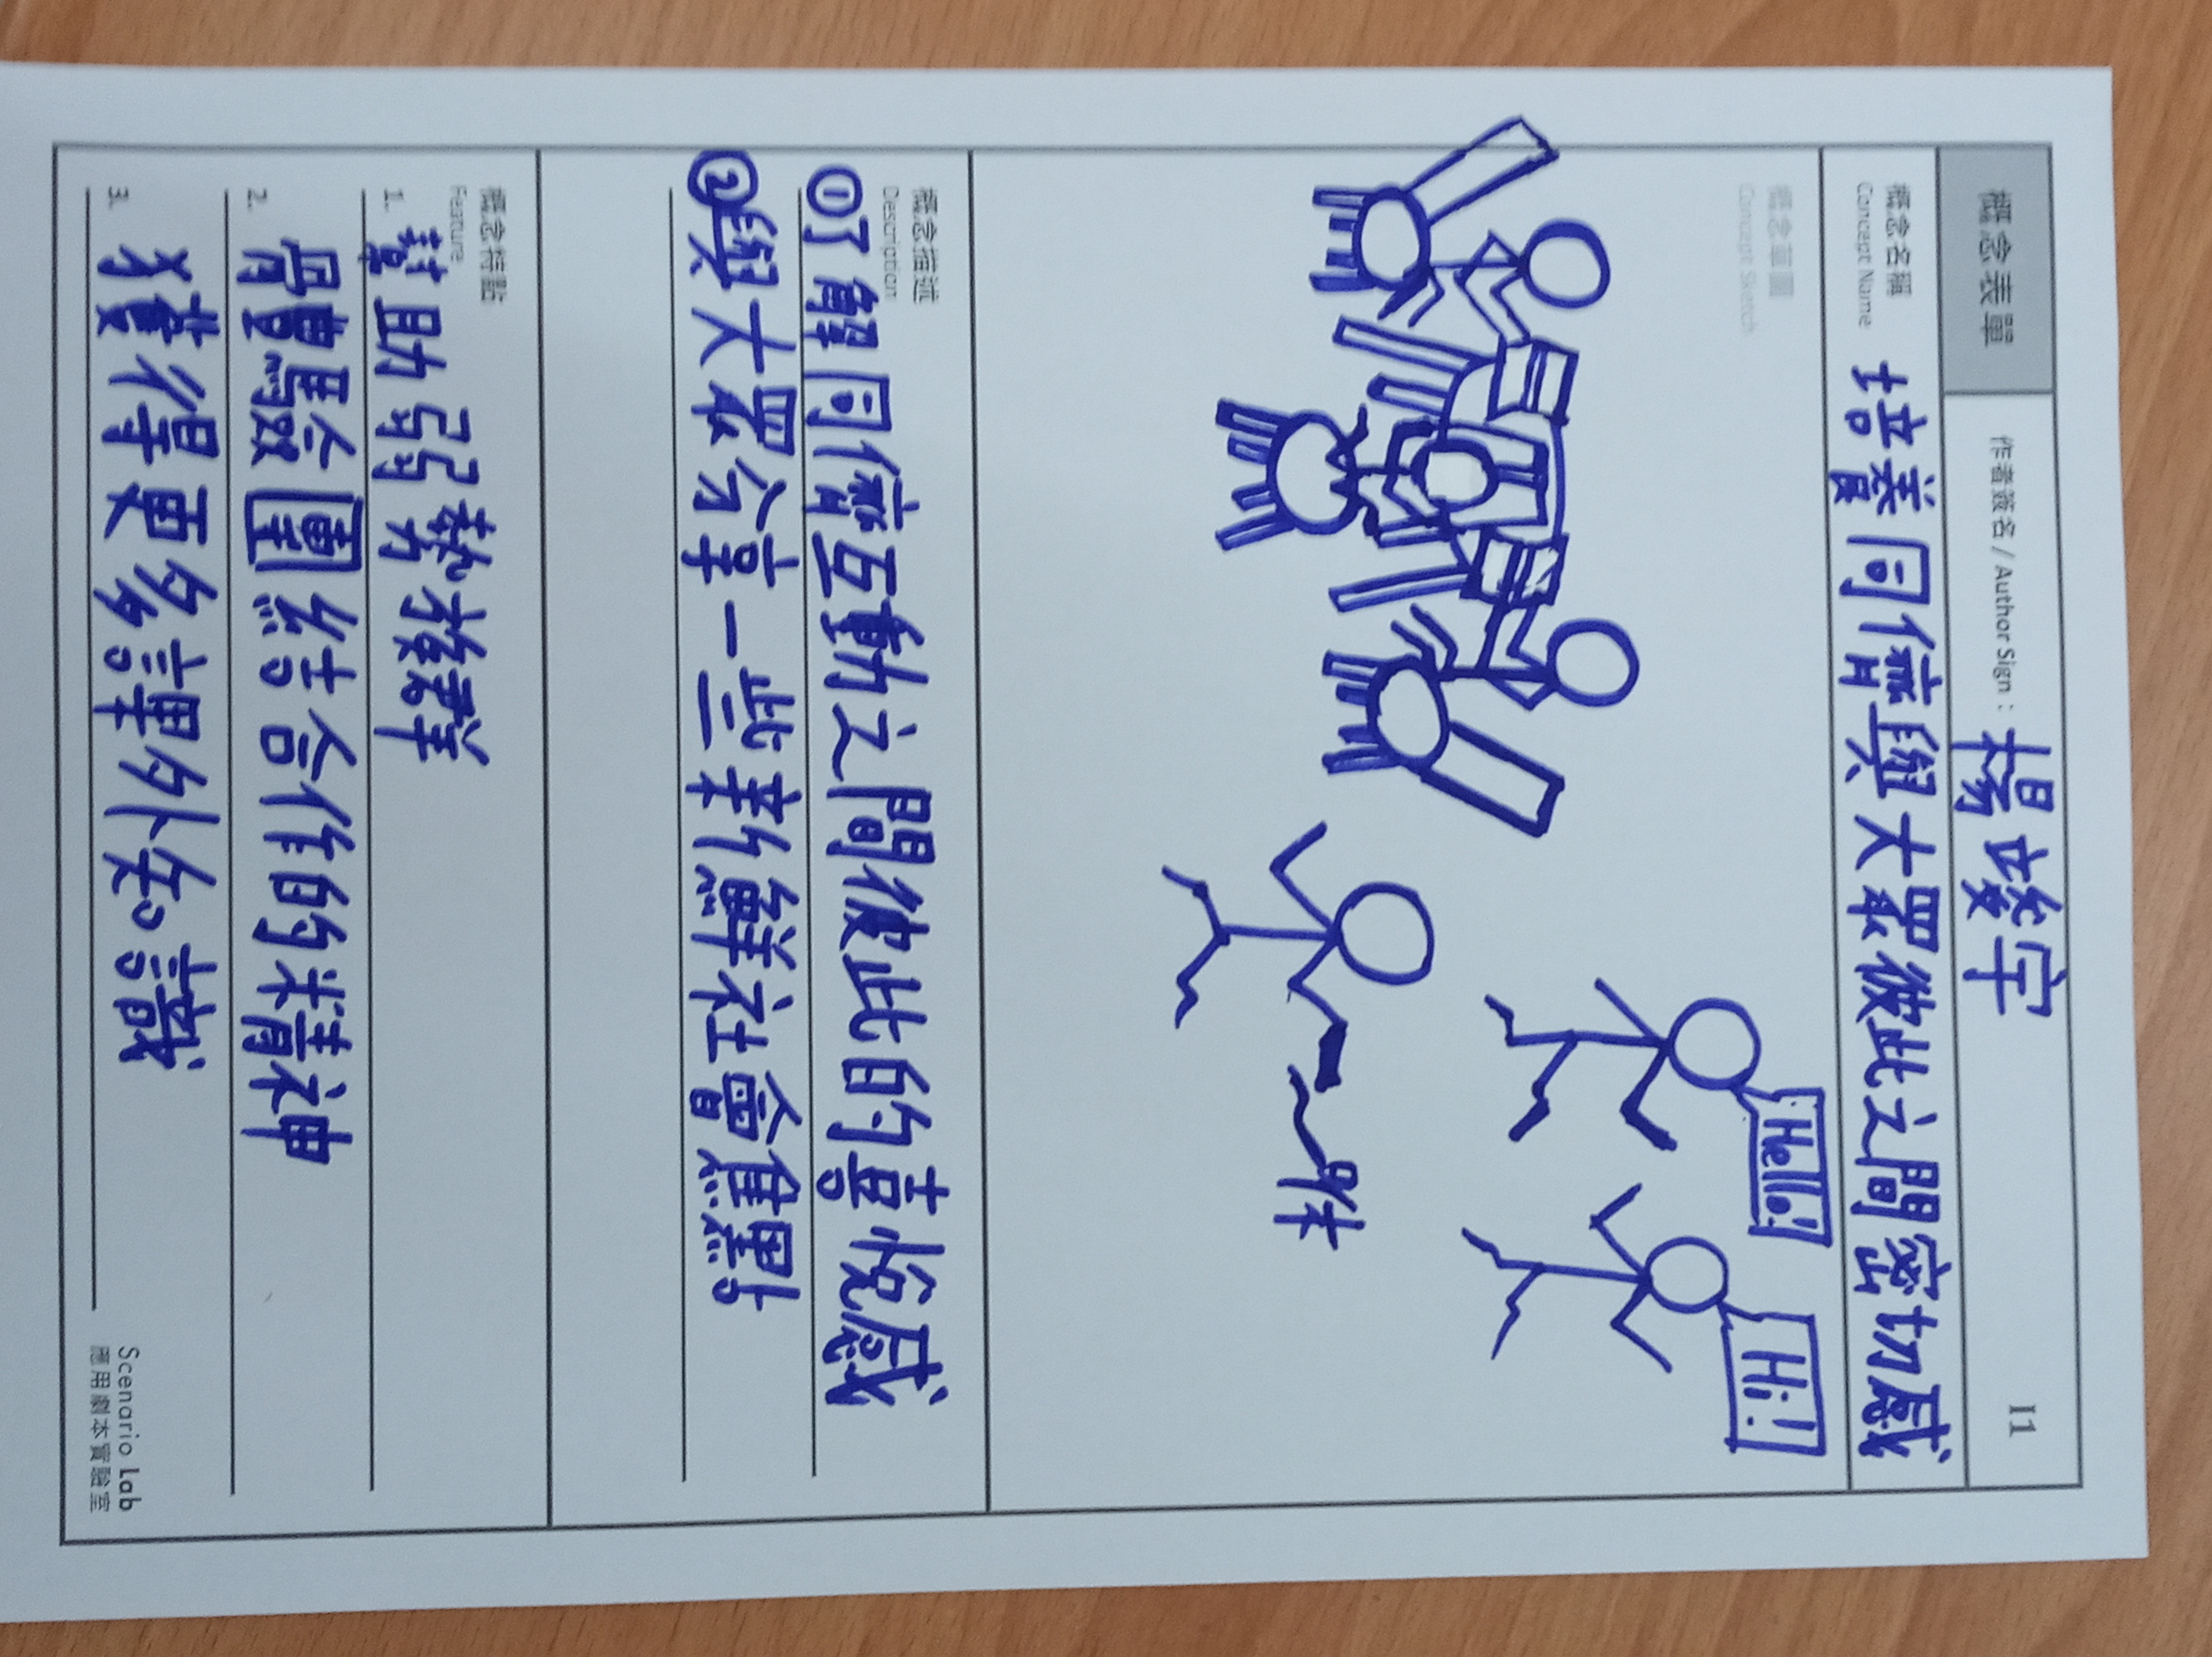 概念表單
作者簽名 / Author Sign : 楊竣宇
I1
概念名稱
Concept Name
培養同儕與大眾彼此之間密切感
概念草圖
Concept Sketch
Hello!
Hi!
伴
概念描述
Description
①了解同儕互動之間彼此的喜悅感
②與大眾分享一些新鮮社會焦點
概念特點
Feature
1. 幫助弱勢族群
2. 體驗團結合作的精神
3. 獲得更多課外知識
Scenario Lab
應用劇本實驗室